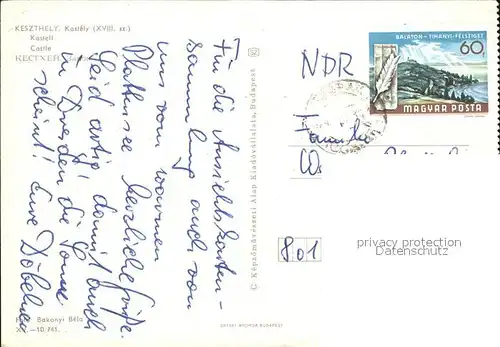 KESZTHELY, Kastély (XVIII. sz.)
Kastell
Castle
Für die Ansichtskarten-
sammlung auch von
uns vom warmen
Plattensee herzliche Grüße.
Seid artig damit auch
in Dresden die Sonne
scheint! Eure Döbelner
Foto: Bakonyi Béla
XX.—10.741.
© Képzőművészeti Alap Kiadóvállalata, Budapest
OFFSET NYOMDA BUDAPEST
BALATON - TIHANYI-FÉLSZIGET
60
MAGYAR POSTA
NDR
Familie
W.
801
privacy protection
Datenschutz